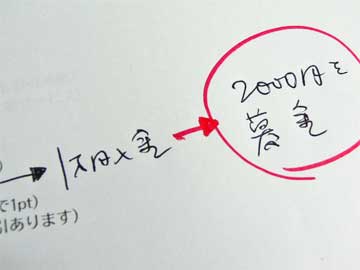 2000円を
募金
1万円入金
で1pt)
引あります)